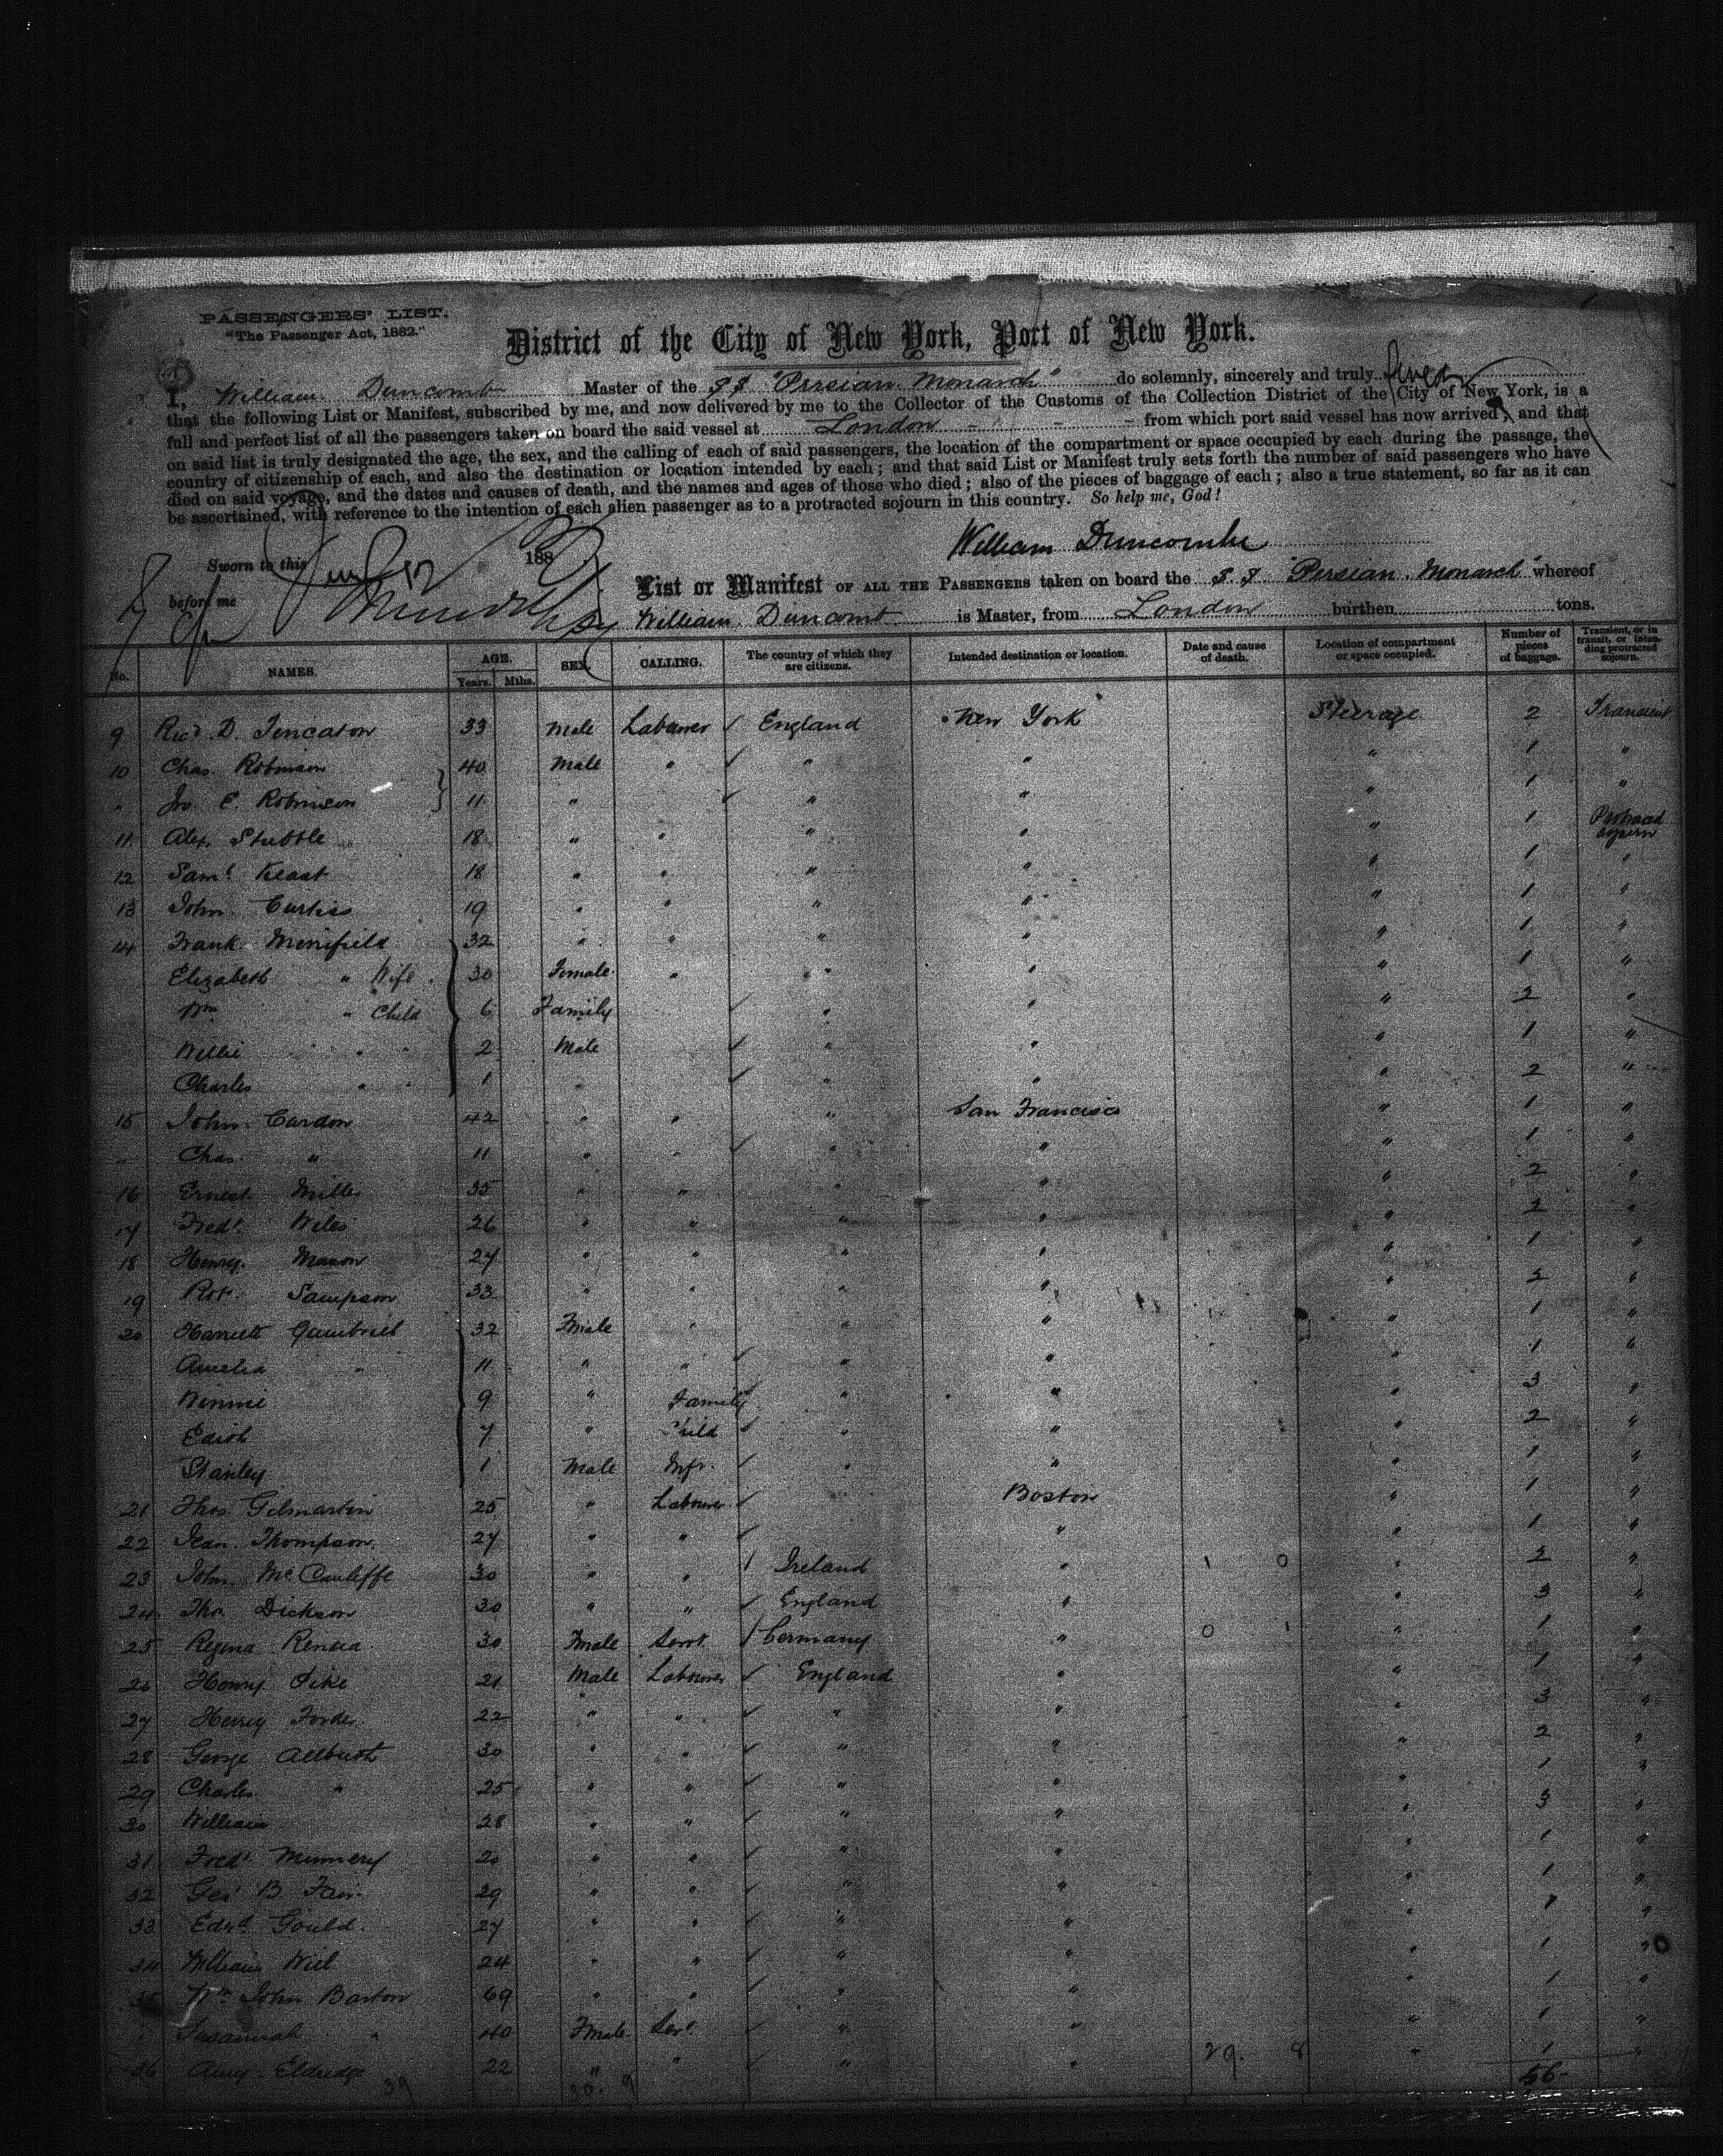 PASSENGERS' LIST.
"The Passenger Act, 1882."
District of the City of New York, Port of New York.
I, William Duncomb Master of the SS "Persian Monarch" do solemnly, sincerely and truly
that the following List or Manifest, subscribed by me, and now delivered by me to the Collector of the Customs of the Collection District of the City of New York, is a
full and perfect list of all the passengers taken on board the said vessel at London from which port said vessel has now arrived; and that
on said list is truly designated the age, the sex, and the calling of each of said passengers, the location of the compartment or space occupied by each during the passage, the
country of citizenship of each, and also the destination or location intended by each; and that said List or Manifest truly sets forth the number of said passengers who have
died on said voyage, and the dates and causes of death, and the names and ages of those who died; also of the pieces of baggage of each; also a true statement, so far as it can
be ascertained, with reference to the intention of each alien passenger as to a protracted sojourn in this country. So help me, God!
William Duncombe
Sworn to this 188
before me
List or Manifest OF ALL THE PASSENGERS taken on board the S.S "Persian Monarch" whereof
William Duncomb is Master, from London burthen tons.
No. NAMES. AGE. Years. Mths. SEX. CALLING. The country of which they are citizens. Intended destination or location. Date and cause of death. Location of compartment or space occupied. Number of pieces of baggage. Transient, or in transit, or intending protracted sojourn.
9 Ricd. D. 33 Male Labourer ✓ England New York Steerage 2 Transient
10 Chas. Robinson 40 Male " ✓ " " " 1 "
" E. Robinson 11 " ✓ " " " 1 "
11 Alex. Stubble 18 " " " " " 1 Protraced
12 Saml. Keast 18 " " " " " 1 "
13 John Curtiss 19 " " " " " 1 "
14 Frank Merrifield 32 " " " " " 1 "
Elizabeth " Wife 30 Female " " " " 1 "
Wm " Child 6 Family ✓ " " " 2 "
Willie " " 2 Male ✓ " " " 1 "
Charles " " 1 " ✓ " " " 2 "
15 John Cardon 42 " " " San Francisco " 1 "
" Chas. " 11 " " ✓ " " 1 "
16 Ernest Miller 35 " " " " " 2 "
17 Fredk. Wiles 26 " " " " " 2 "
18 Henry Mason 27 " " " " " 1 "
19 Robt. Sampson 33 " " " " " 2 "
20 Harriett Gambriel 32 Fmale " " " " 1 "
Amelia " 11 " " ✓ " " " 1 "
Winnie 9 " Family " " " 3 "
Edith 7 " Child ✓ " " " 2 "
Stanley 1 Male Inft. ✓ " " " 1 "
21 Thos. Gilmartin 25 " Labourer ✓ Boston " 1 "
22 Thompson 27 " " ✓ " " 1 "
23 John McCauliffe 30 " " Ireland " 1 0 " 2 "
24 Thos. Dickson 30 " " ✓ England " " 3 "
25 Regina 30 Fmale Servt. Germany " 0 1 " 1 "
26 Henry Pike 21 Male Labourer ✓ England " " 1 "
27 Henry Forde 22 " " ✓ " " 3 "
28 George Allbutt 30 " " ✓ " " " 2 "
29 Charles " 25 " " ✓ " " " 1 "
30 William 28 " " ✓ " " " 3 "
31 Fredk. 20 " " ✓ " " 1 "
32 Geo. B. Fair 29 " " ✓ " " " 1 "
33 Edwd. Gould 27 " " ✓ " " " 1 "
34 William Will 24 " " ✓ " " " 1 " 0
35 Wm. John Barton 69 " " ✓ " " " 1 "
Susannah " 40 Fmale Sert. ✓ " " " 1 "
36 Amy Eldredge 22 " " ✓ " " 29. 8 " 1 "
39 30. 9 56